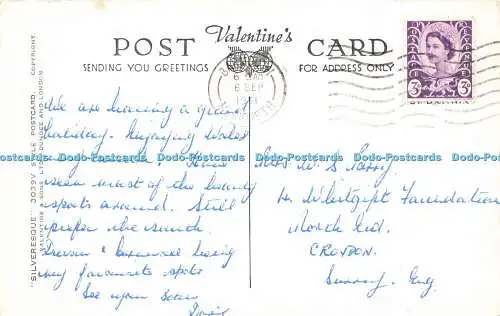 Valentine's
POST CARD
SENDING YOU GREETINGS
FOR ADDRESS ONLY
"SILVERESQUE" 3039V STYLE POSTCARD. COPYRIGHT.
VALENTINE & SONS, LTD., DUNDEE AND LONDON.
6 SEP
3D 3D
We are having a good
holiday. Enjoying Wales
again. Have
seen most of the beauty
spots around. Still
prefer the South.
Devon & Cornwall being
my favourite spots
See you soon
Doris
W. S.
Whitgift Foundation
North End
CROYDON.
Surrey. Eng.
Dodo-Postcards Dodo-Postcards Dodo-Postcards Dodo-Postcards Dodo-Postcards Dodo-Postcards